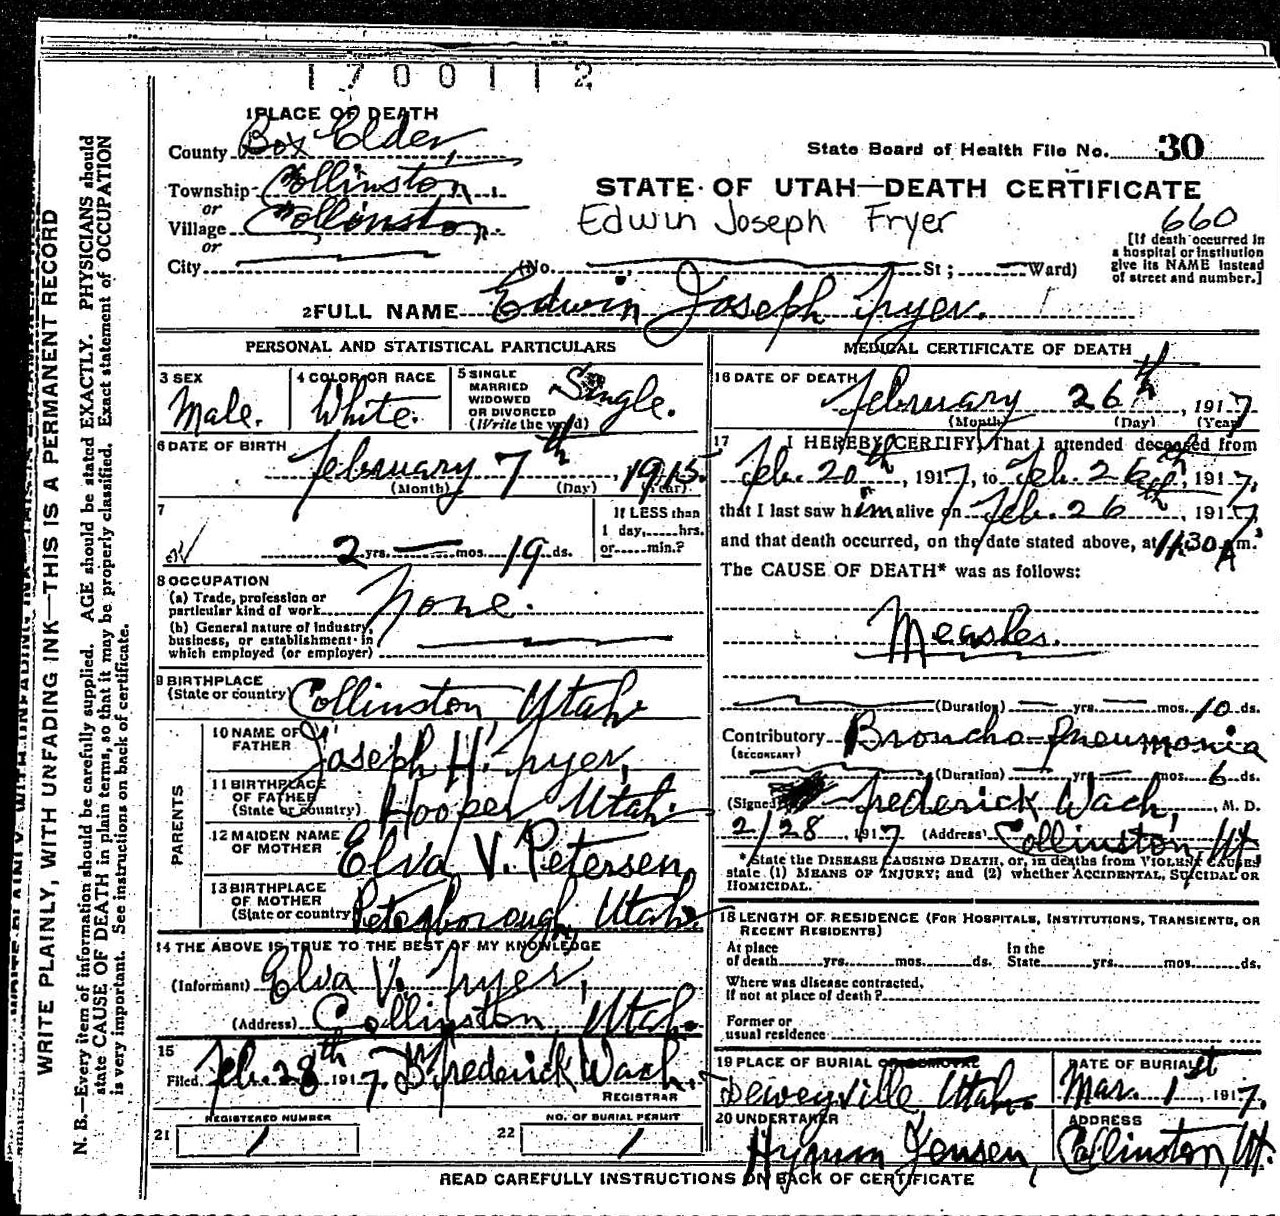 1700112
1 PLACE OF DEATH
County Box Elder
Township Collinston
or
Village Collinston
or
City (No. St; Ward)
State Board of Health File No. 30
STATE OF UTAH—DEATH CERTIFICATE
Edwin Joseph Fryer
660
[If death occurred in
a hospital or institution
give its NAME instead
of street and number.]
2 FULL NAME Edwin Joseph Fryer.
PERSONAL AND STATISTICAL PARTICULARS
3 SEX
Male.
4 COLOR OR RACE
White.
5 SINGLE
MARRIED
WIDOWED
OR DIVORCED
(Write the word)
Single.
6 DATE OF BIRTH
February 7th, 1915
(Month) (Day) (Year)
7
2 yrs. — mos. 19 ds.
If LESS than
1 day, hrs.
or min.?
8 OCCUPATION
(a) Trade, profession or
particular kind of work None.
(b) General nature of industry,
business, or establishment in
which employed (or employer)
9 BIRTHPLACE
(State or country) Collinston, Utah
PARENTS
10 NAME OF
FATHER Joseph H. Fryer,
11 BIRTHPLACE
OF FATHER
(State or country) Hooper Utah
12 MAIDEN NAME
OF MOTHER Elva V. Petersen,
13 BIRTHPLACE
OF MOTHER
(State or country) Petersborough, Utah.
14 THE ABOVE IS TRUE TO THE BEST OF MY KNOWLEDGE
(Informant) Elva V. Fryer,
(Address) Collinston, Utah.
15
Filed Feb. 28th 1917. Frederick Wach.
REGISTRAR
REGISTERED NUMBER
21 1
NO. OF BURIAL PERMIT
22 1
MEDICAL CERTIFICATE OF DEATH
16 DATE OF DEATH
February 26th, 1917
(Month) (Day) (Year)
17 I HEREBY CERTIFY, That I attended deceased from
Feb. 20th, 1917, to Feb. 26th, 1917,
that I last saw him alive on Feb. 26th, 1917,
and that death occurred, on the date stated above, at 11:30 A m.
The CAUSE OF DEATH* was as follows:
Measles.
(Duration) — yrs. — mos. 10 ds.
Contributory Broncho-pneumonia
(SECONDARY)
(Duration) — yrs. — mos. 6 ds.
(Signed) Frederick Wach, M. D.
2/28, 1917 (Address) Collinston, Ut.
*State the DISEASE CAUSING DEATH, or, in deaths from VIOLENT CAUSES
state (1) MEANS OF INJURY; and (2) whether ACCIDENTAL, SUICIDAL OR
HOMICIDAL.
18 LENGTH OF RESIDENCE (FOR HOSPITALS, INSTITUTIONS, TRANSIENTS, OR
RECENT RESIDENTS)
At place
of death yrs. mos. ds.
In the
State yrs. mos. ds.
Where was disease contracted,
if not at place of death?
Former or
usual residence
19 PLACE OF BURIAL OR REMOVAL
Deweyville Utah.
DATE OF BURIAL
Mar. 1st, 1917.
20 UNDERTAKER
Hyrum Jensen,
ADDRESS
Collinston, Ut.
READ CAREFULLY INSTRUCTIONS ON BACK OF CERTIFICATE
WRITE PLAINLY, WITH UNFADING INK—THIS IS A PERMANENT RECORD
N. B.—Every item of information should be carefully supplied. AGE should be stated EXACTLY. PHYSICIANS should
state CAUSE OF DEATH in plain terms, so that it may be properly classified. Exact statement of OCCUPATION
is very important. See instructions on back of certificate.